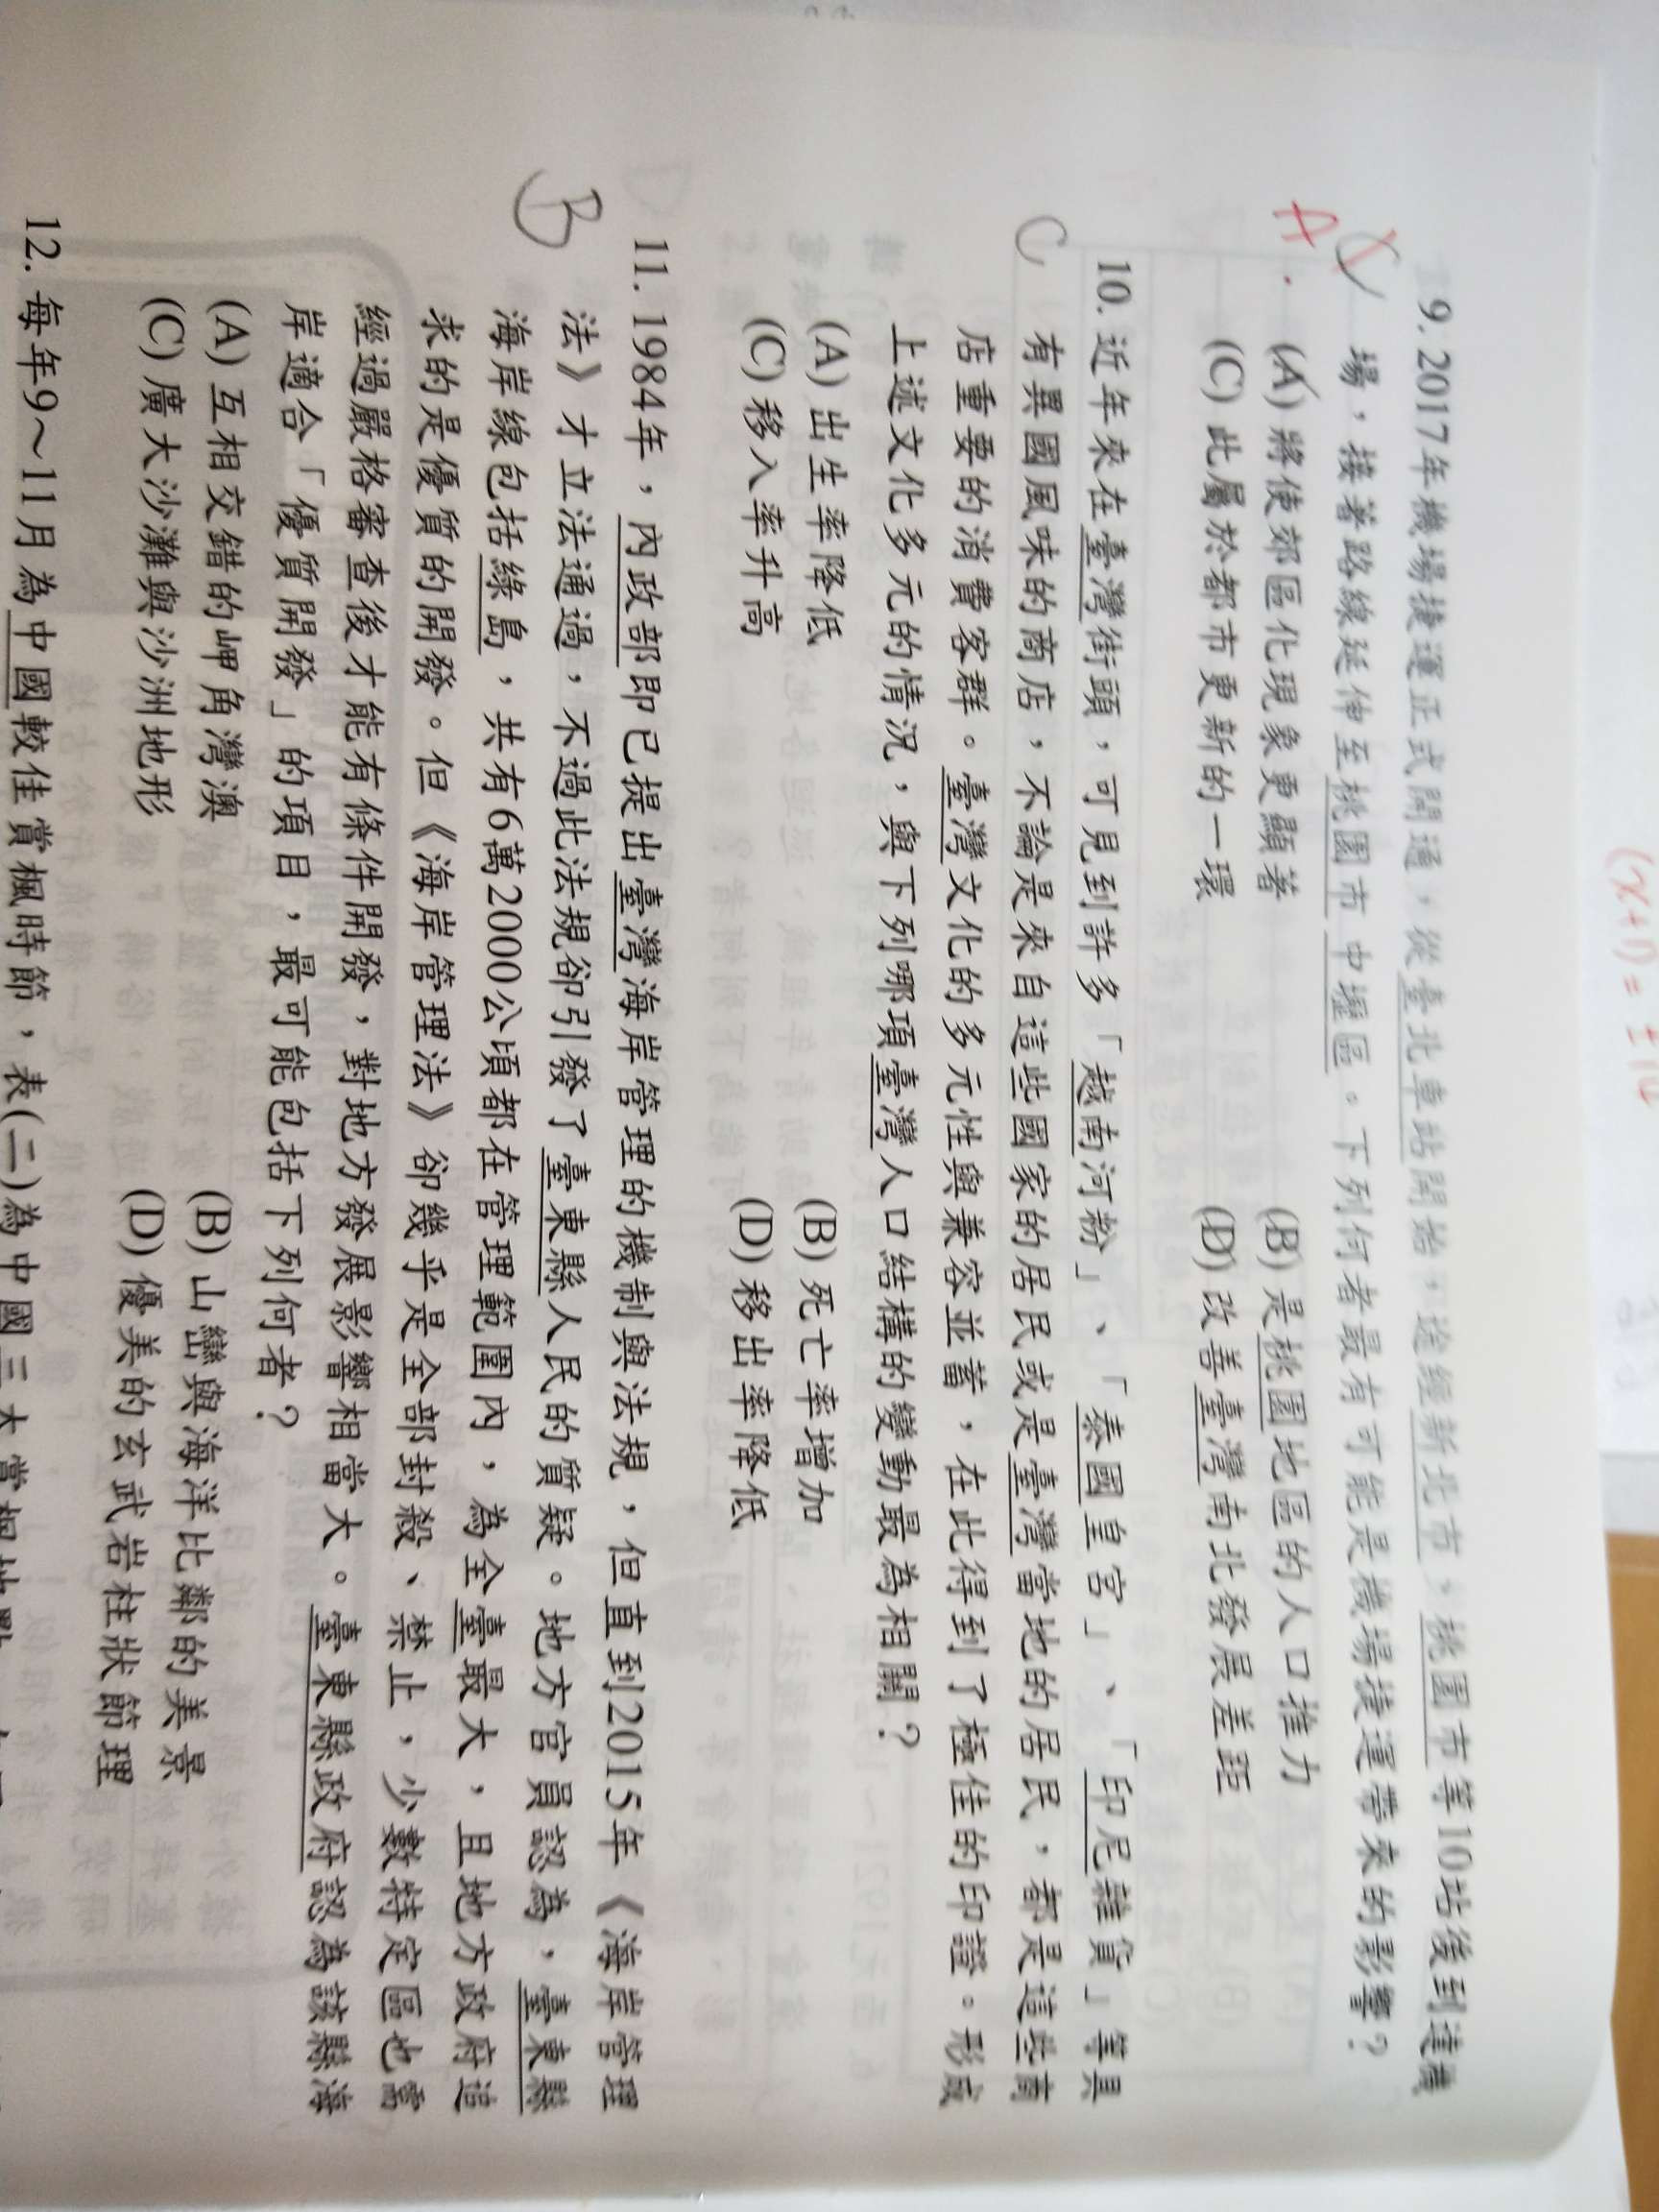 (x+1)=±14
9. 2017年機場捷運正式開通，從臺北車站開始，途經新北市、桃園市等10站後到達機
場，接著路線延伸至桃園市中壢區。下列何者最有可能是機場捷運帶來的影響？
C
A
(A) 將使郊區化現象更顯著
(B) 是桃園地區的人口推力
(C) 此屬於都市更新的一環
(D) 改善臺灣南北發展差距
C
10. 近年來在臺灣街頭，可見到許多「越南河粉」、「泰國皇宮」、「印尼雜貨」等具
有異國風味的商店，不論是來自這些國家的居民或是臺灣當地的居民，都是這些商
店重要的消費客群。臺灣文化的多元性與兼容並蓄，在此得到了極佳的印證。形成
上述文化多元的情況，與下列哪項臺灣人口結構的變動最為相關？
(A) 出生率降低
(B) 死亡率增加
(C) 移入率升高
(D) 移出率降低
B
11. 1984年，內政部即已提出臺灣海岸管理的機制與法規，但直到2015年《海岸管理
法》才立法通過，不過此法規卻引發了臺東縣人民的質疑。地方官員認為，臺東縣
海岸線包括綠島，共有6萬2000公頃都在管理範圍內，為全臺最大，且地方政府追
求的是優質的開發。但《海岸管理法》卻幾乎是全部封殺、禁止，少數特定區也需
經過嚴格審查後才能有條件開發，對地方發展影響相當大。臺東縣政府認為該縣海
岸適合「優質開發」的項目，最可能包括下列何者？
(A) 互相交錯的岬角灣澳
(B) 山巒與海洋比鄰的美景
(C) 廣大沙灘與沙洲地形
(D) 優美的玄武岩柱狀節理
12. 每年9～11月為中國較佳賞楓時節，表(二)為中國三大賞楓地點